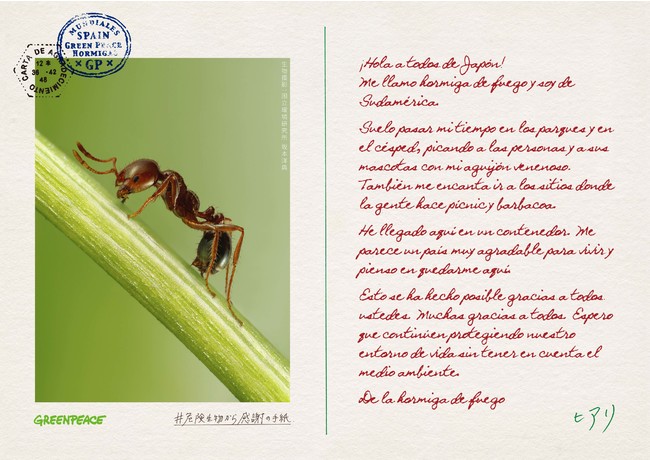 MUNDIALES
SPAIN
GREEN PEACE
HORMIGAS
× GP ×
CARTA DE AGRADECIMIENTO
GREENPEACE
#危険生物から感謝の手紙
¡Hola a todos de Japón!
Me llamo hormiga de fuego y soy de
Sudamérica.
Suelo pasar mi tiempo en los parques y en
el césped, picando a las personas y a sus
mascotas con mi aguijón venenoso.
También me encanta ir a los sitios donde
la gente hace picnic y barbacoa.
He llegado aquí en un contenedor. Me
parece un país muy agradable para vivir y
pienso en quedarme aquí.
Esto se ha hecho posible gracias a todos
ustedes. Muchas gracias a todos. Espero
que continúen protegiendo nuestro
entorno de vida sin tener en cuenta el
medio ambiente.
De la hormiga de fuego
ヒアリ